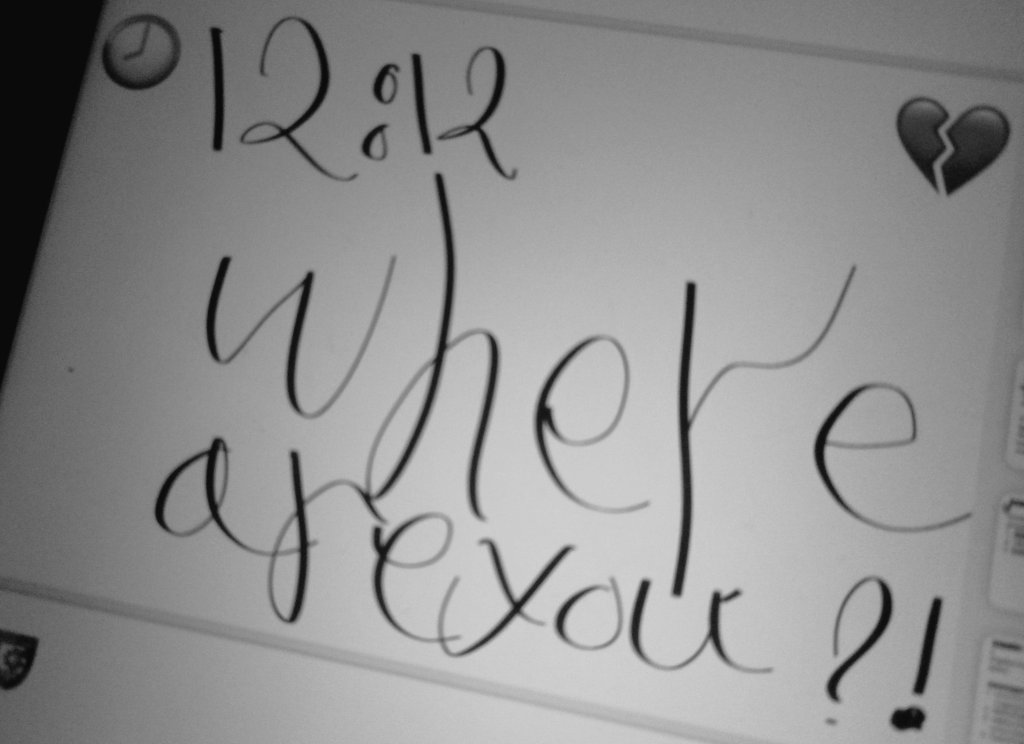 12:12
where
are you?!